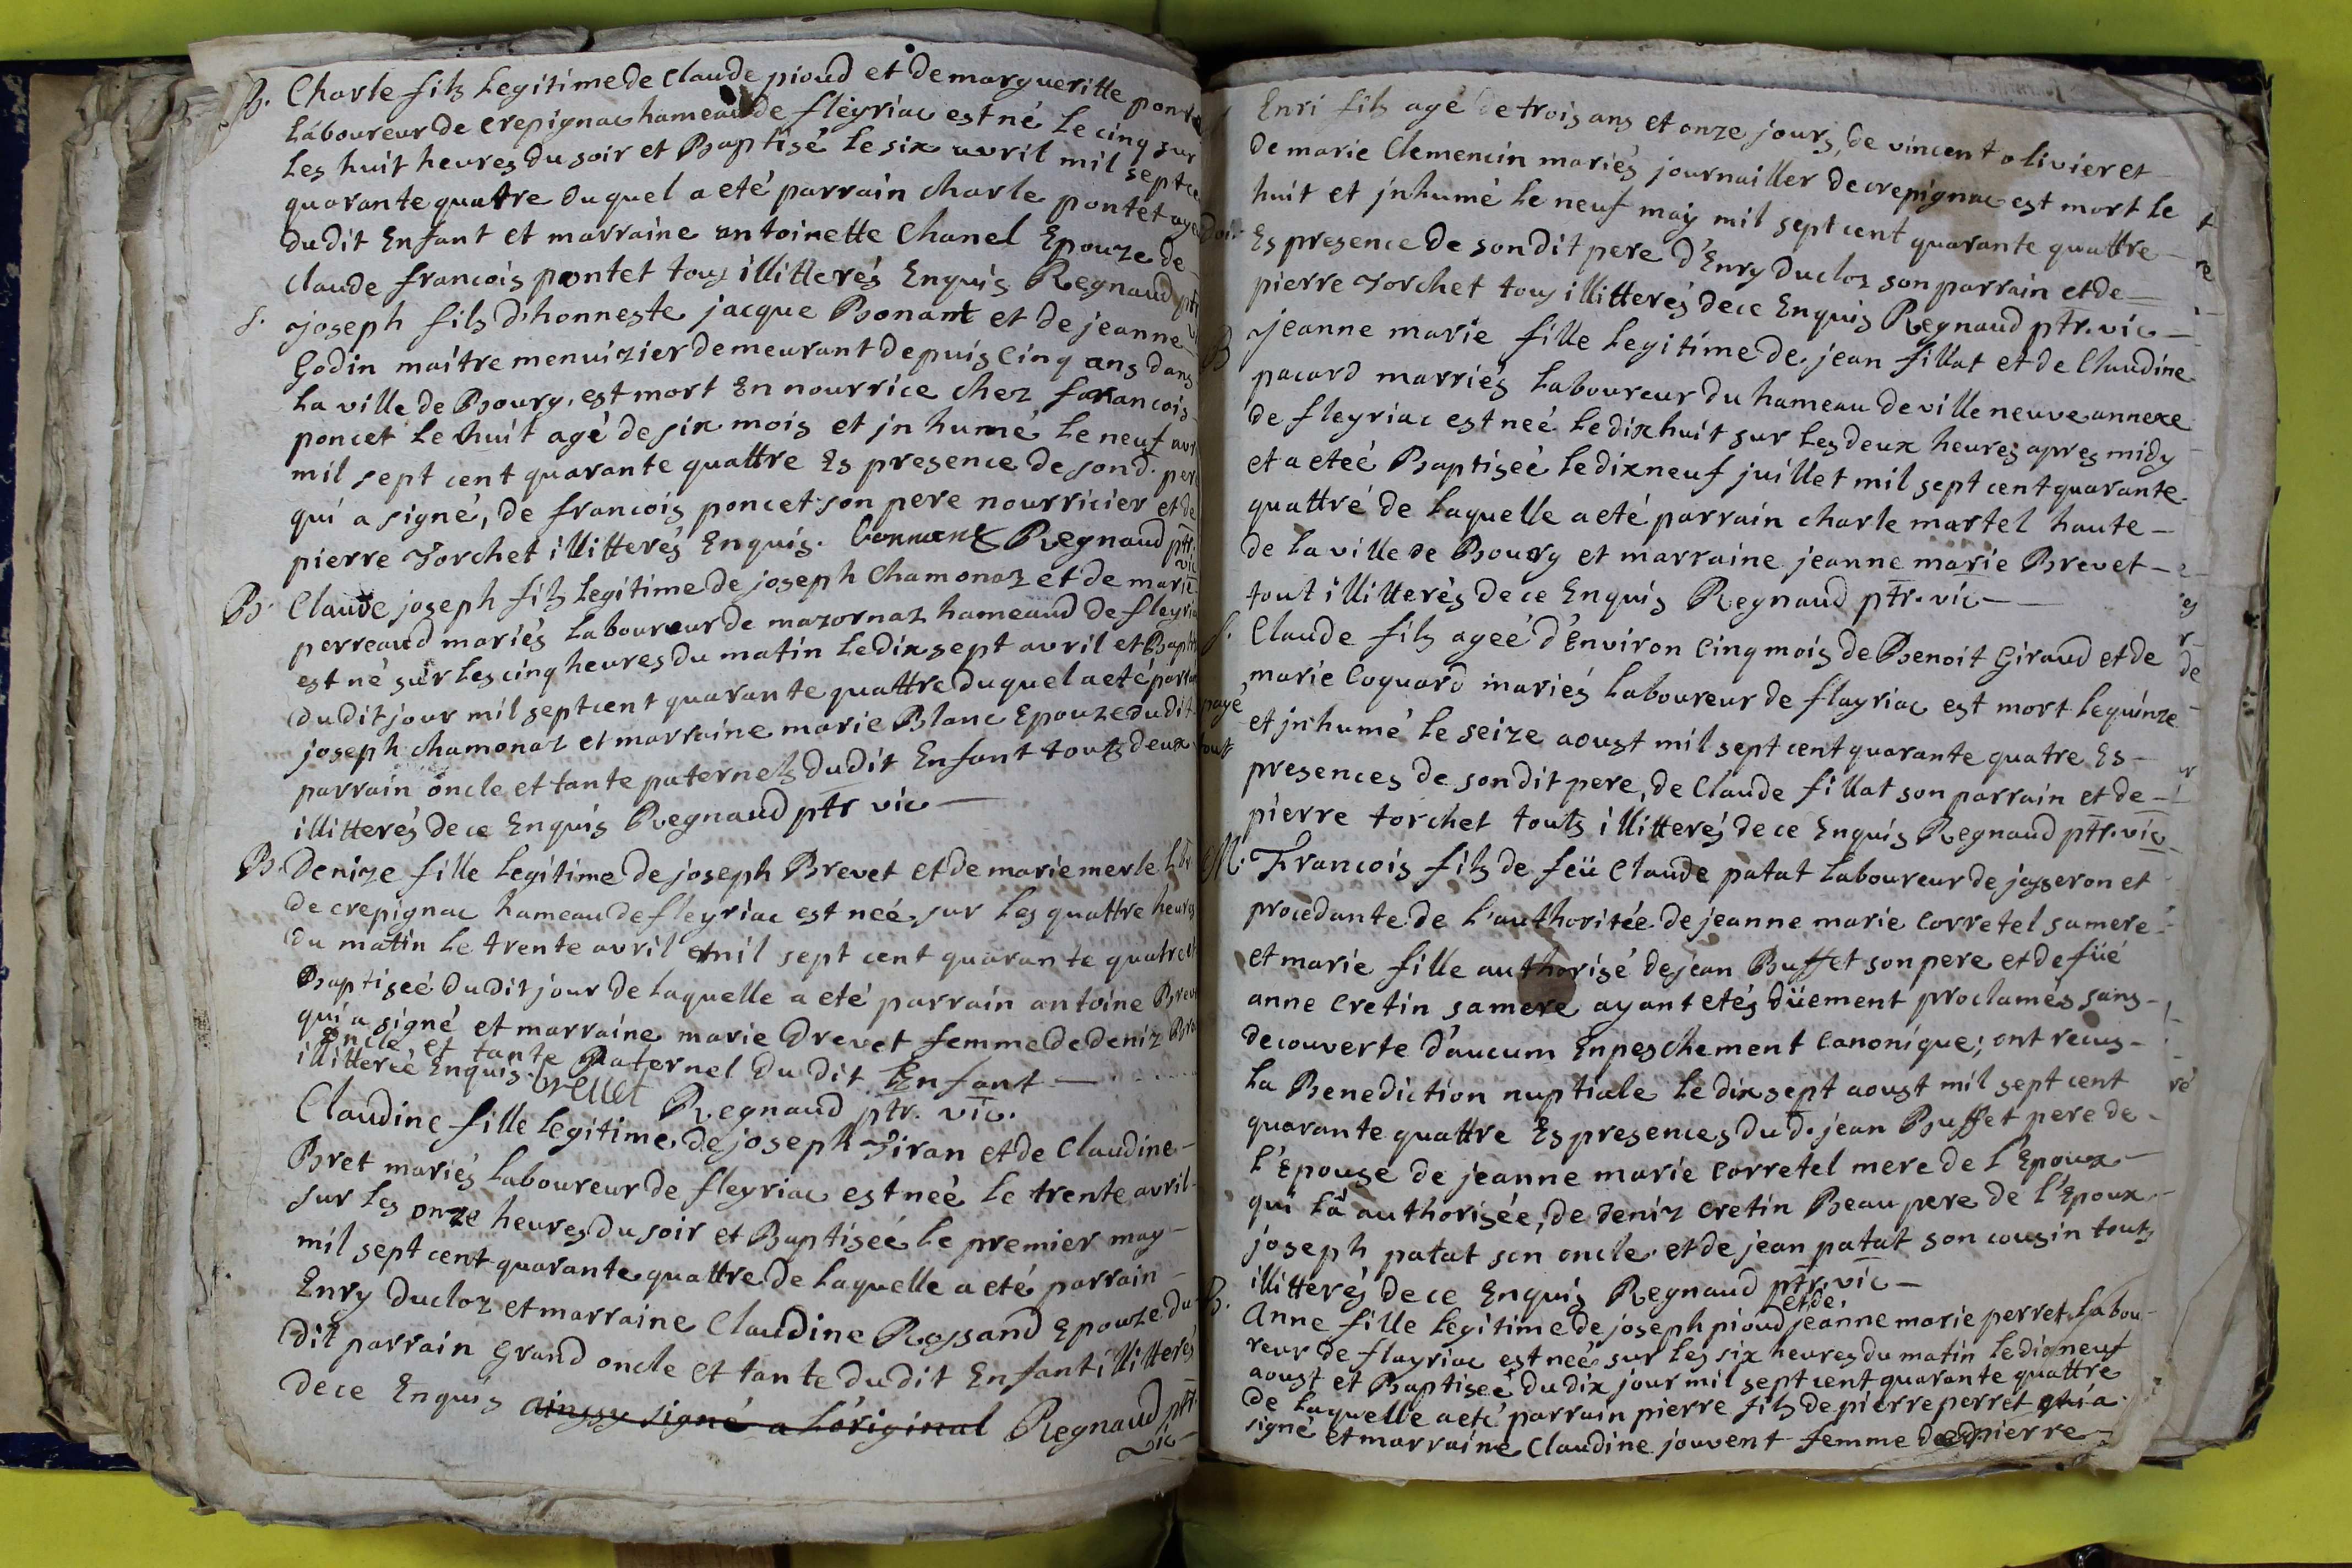 B. Charle fils Legitime de Claude pioud et de margueritte
Laboureur de crepignac hameau de fleyriac est né Le cinq sur
Les huit heures du soir et Baptisé Le six avril mil sept
quarante quattre duquel a eté parrain charle pontet
dudit Enfant et marraine antoinette Chanel Epouze de
Claude francois pontet tous illitterés Enquis Regnaud ptr
S. joseph fils d'honneste jacque Bonant et de jeanne
Godin maitre menuizier demeurant depuis cinq ans dans
La ville de Bourg, est mort En nourrice chez francois
poncet Le huit agé de six mois et jnhumé Le neuf avr
mil sept cent quarante quattre Es presence de sond. pere
qui a signé, de francois poncet son pere nourricier et de
pierre Torchet illitterés Enquis. bonnant Regnaud ptr. vic
B. Claude joseph fils Legitime de joseph Chamonaz et de marie
perreaud mariés Laboureur de mazornaz hameaud de fleyria
est né sur Les cinq heures du matin Le dix sept avril et Bapti
dudit jour mil sept cent quarante quattre duquel a eté parrai
joseph chamonaz et marraine marie Blanc Epouze dudit
parrain oncle et tante paternels dudit Enfant touts deux
illitterés de ce Enquis Regnaud ptr vic
B. Denize fille Legitime de joseph Brevet et de marie merle Lbr
de crepignac hameau de fleyriac est neé sur Les quattre heures
du matin Le trente avril mil sept cent quarante quatre et
Baptiseé dudit jour de Laquelle a eté parrain antoine Breve
qui a signé et marraine marie Drevet femme de deniz Bre
oncle et tante paternel du dit Enfant
illitteréé Enquis. brevet Regnaud ptr. vic.
Claudine fille Legitime de joseph Tiran et de Claudine
Bret mariés Laboureur de fleyriac est neé Le trente avril
sur Les onze heures du soir et Baptiseé Le premier may
mil sept cent quarante quattre de Laquelle a eté parrain
Enry Ducloz et marraine Claudine Rossand Epouze du
dit parrain Grand oncle et tante dudit Enfant illitterés
de ce Enquis ainssy signé a L'original Regnaud ptr. vic
Enri fils agé de trois ans et onze jours, de vincent olivier et
de marie Clemencin mariés journailler de crepignac est mort Le
huit et jnhumé Le neuf maÿ mil sept cent quarante quattre
Es presence de son dit pere d'Enry Ducloz son parrain et de
pierre Torchet tous illitterés de ce Enquis Regnaud ptr. vic
B jeanne marie fille Legitime de jean fillat et de Claudine
pacard marriés Laboureur du hameau de ville neuve annexe
de fleyriac est neé Le dix huit sur Les deux heures apres midy
et a eteé Baptiseé Le dix neuf juillet mil sept cent quarante
quattré de Laquelle a eté parrain charle martel haute
de La ville de Bourg et marraine jeanne marie Brevet
tout illitterés de ce Enquis Regnaud ptr. vic
S. Claude fils ageé d'Environ cinq mois de Benoit Giraud et de
marie Coquard mariés Laboureur de flayriac est mort Le quinze
payé et jnhumé Le seize aoust mil sept cent quarante quatre Es
presences de son dit pere, de Claude fillat son parrain et de
pierre torchet touts illitterés de ce Enquis Regnaud ptr. vic
M. Francois fils de feü Claude patat Laboureur de jasseron et
procedante de L'authoritée de jeanne marie Corretel sa mere
et marie fille authorisé de jean Buffet son pere et de füé
anne Cretin sa mere ayant etés düement proclamés sans
decouverte d'aucum Enpeschement canonique; ont recus
La Benediction nuptiale Le dix sept aoust mil sept cent
quarante quattre Es presences du d. jean Buffet pere de
L'Epouse de jeanne marie Corretel mere de L'Epoux
qui La authorisée, de Deniz Cretin Beau pere de l'Epoux
joseph patat son oncle et de jean patat son cousin touts
illitterés de ce Enquis Regnaud ptr. vic
B. Anne fille Legitime de joseph pioud et de jeanne marie perret Labou-
reur de flayriac est neé sur Les six heures du matin Le dix neuf
aoust et Baptiseé du dix jour mil sept cent quarante quattre
de Laquelle a eté parrain pierre fils de pierre perret qui a
signé et marraine Claudine jouvent femme de pierre